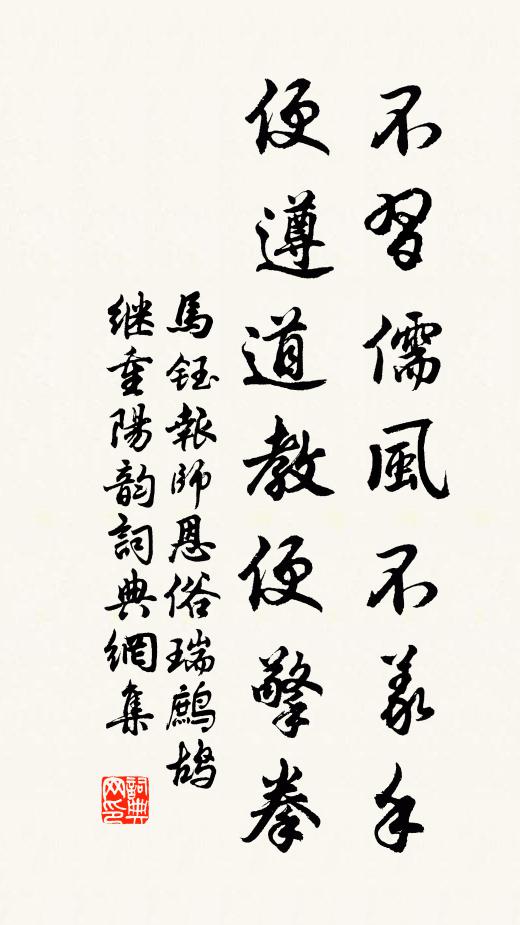 不習儒風不義手
便遵道教便擎拳
馬鈺報師恩俗瑞鷓鴣
继重陽韵詞典網集
詞典网印